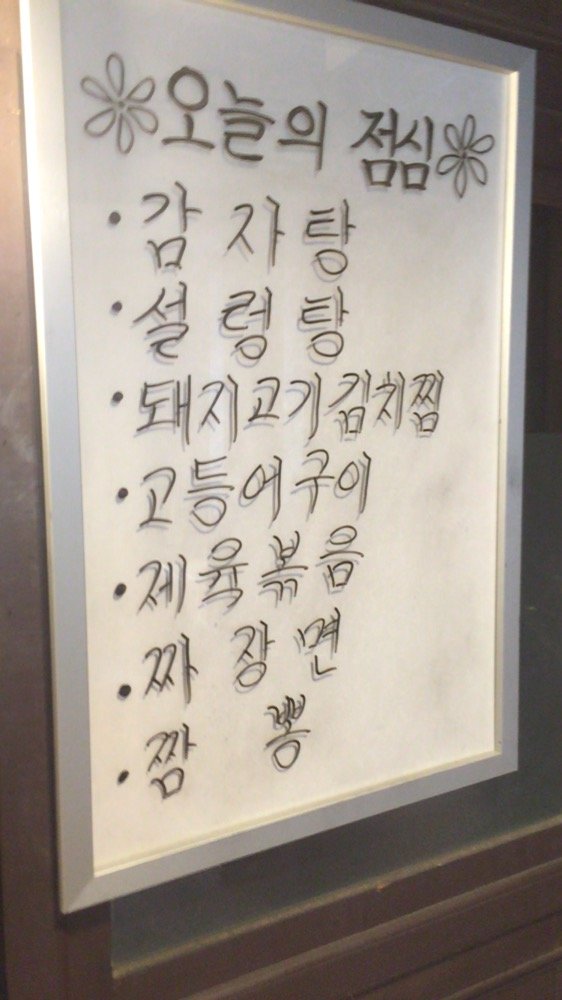 오늘의 점심
· 감자탕
· 설렁탕
· 돼지고기김치찜
· 고등어구이
· 제육볶음
· 짜장면
· 짬뽕